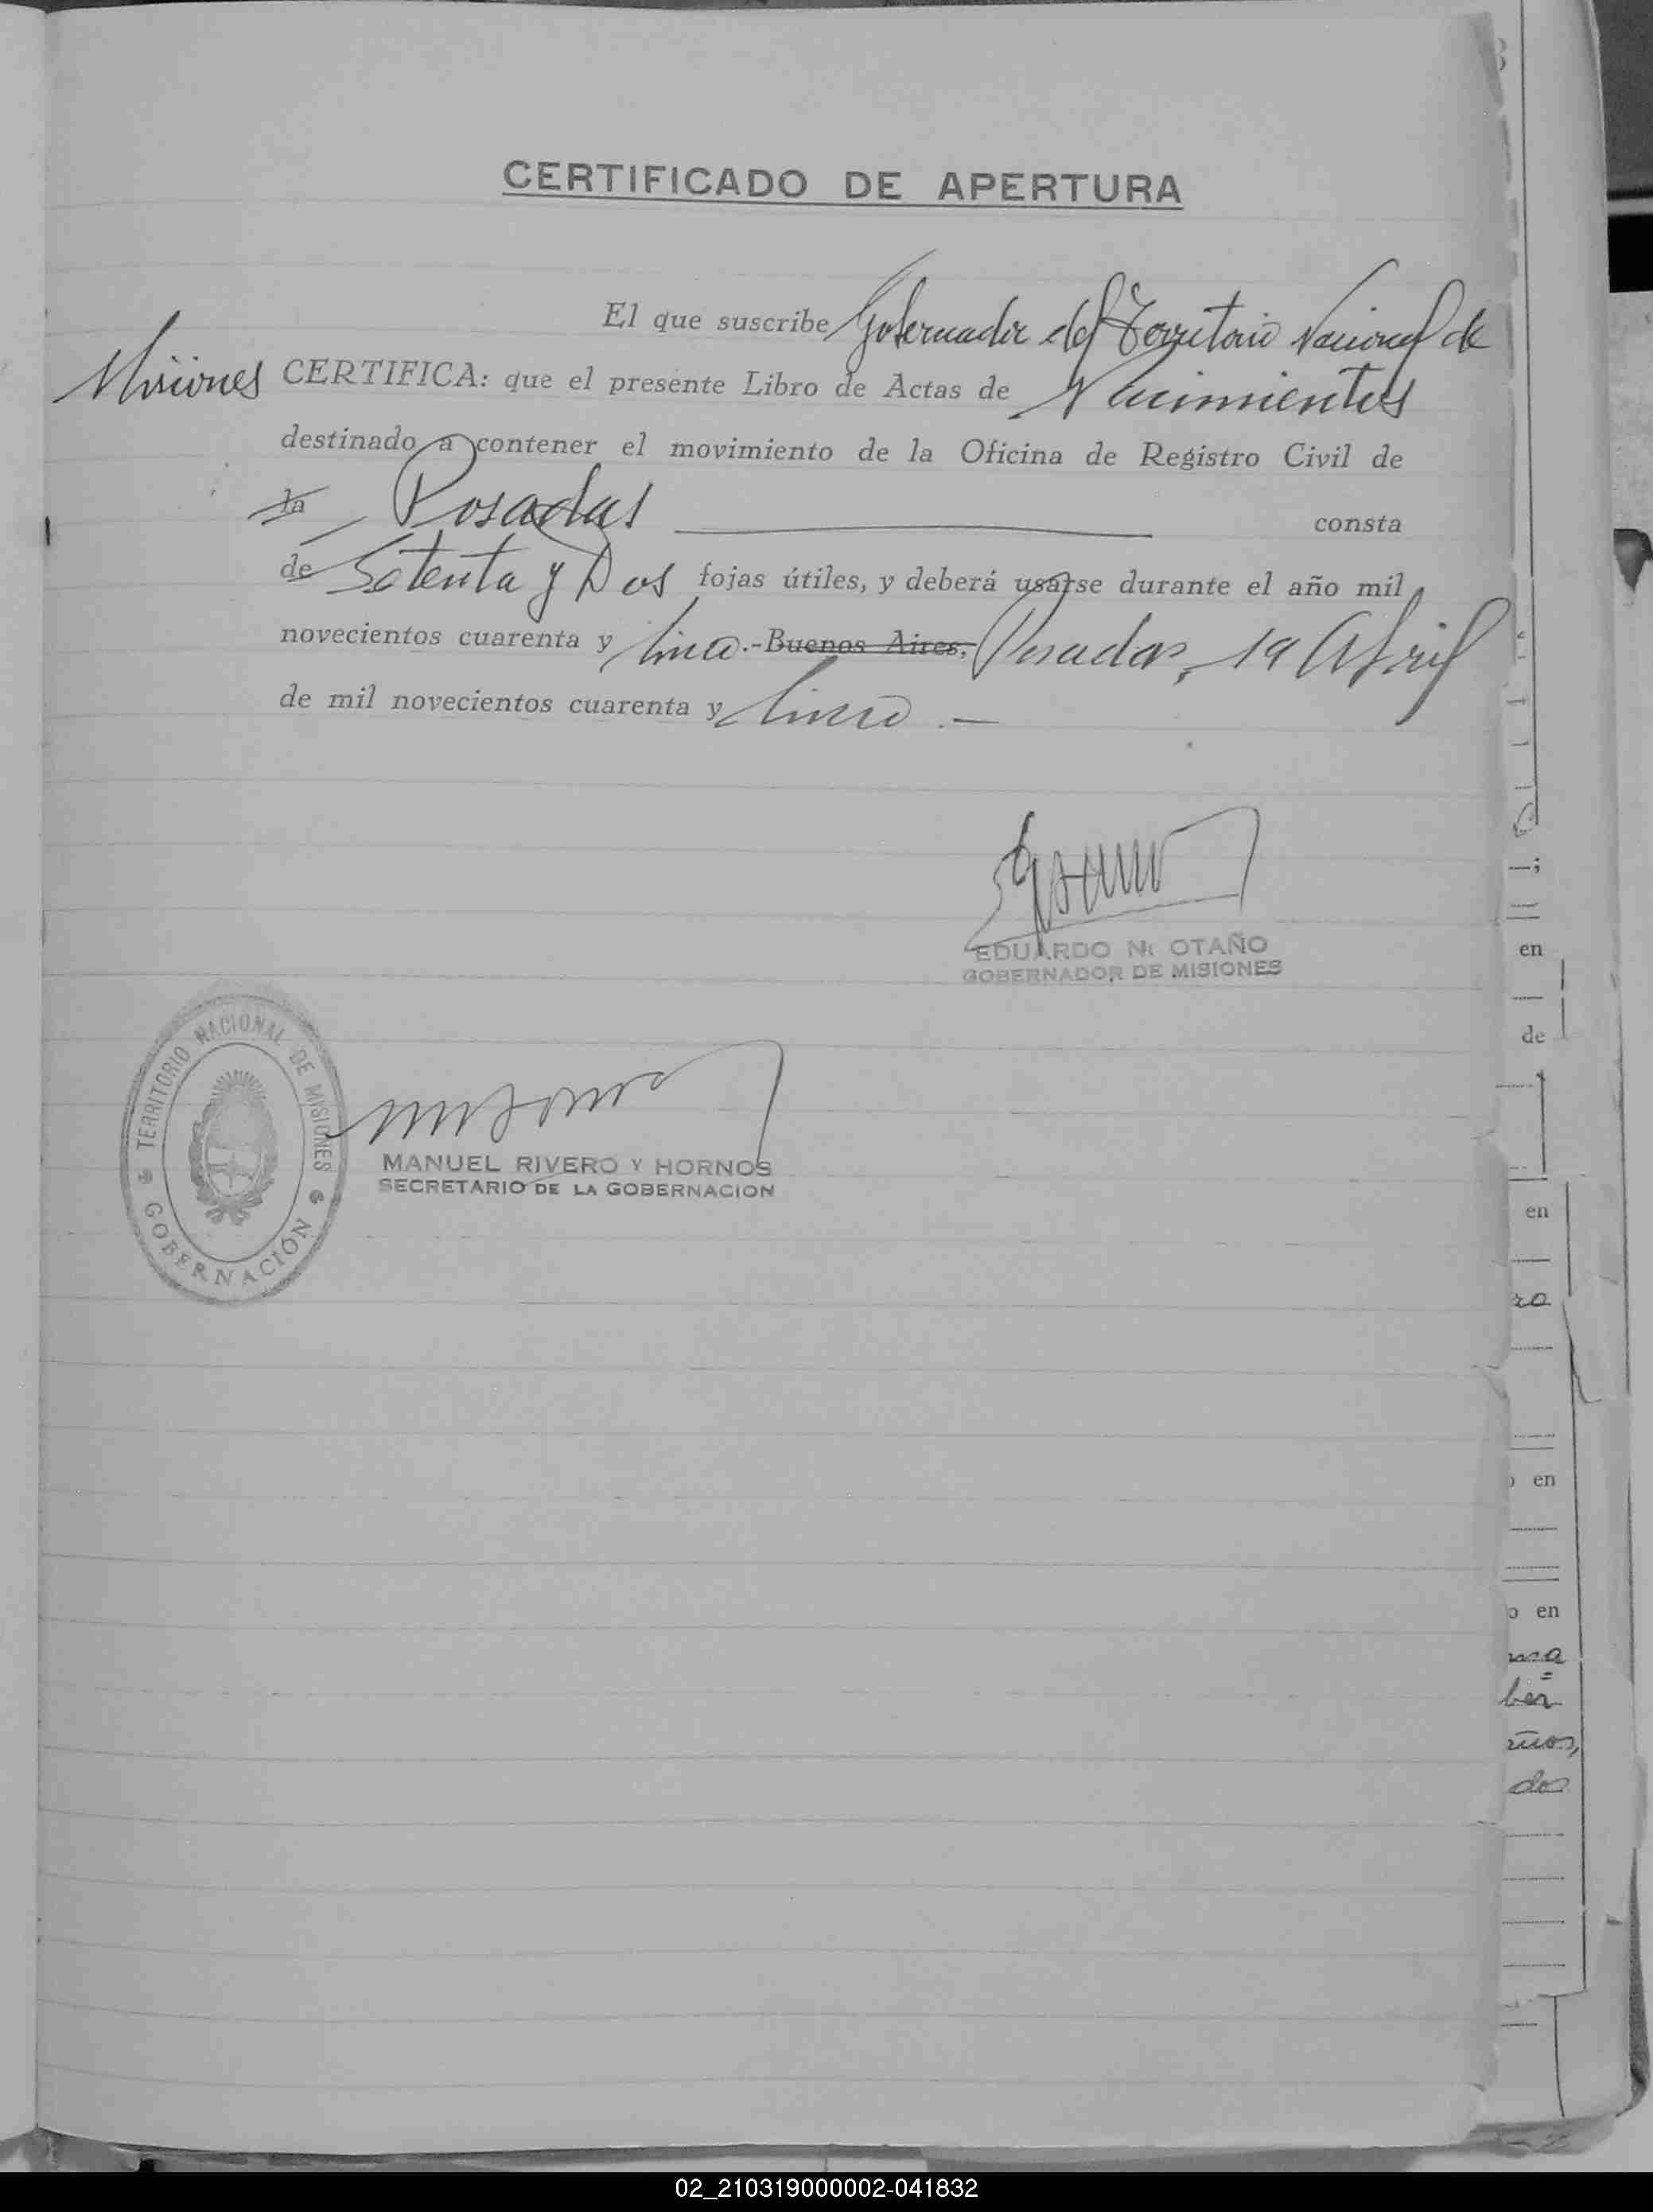 CERTIFICADO DE APERTURA
El que suscribe Gobernador del Territorio Nacional de
Misiones CERTIFICA: que el presente Libro de Actas de Nacimientos
destinado a contener el movimiento de la Oficina de Registro Civil de
la Posadas consta
de Setenta y Dos fojas útiles, y deberá usarse durante el año mil
novecientos cuarenta y cinco.- Buenos Aires, Posadas, 19 Abril
de mil novecientos cuarenta y cinco -
EDUARDO N. OTAÑO
GOBERNADOR DE MISIONES
TERRITORIO NACIONAL DE MISIONES
GOBERNACIÓN
MANUEL RIVERO Y HORNOS
SECRETARIO DE LA GOBERNACION
en
de
en
ro
en
en
dos
02_210319000002-041832